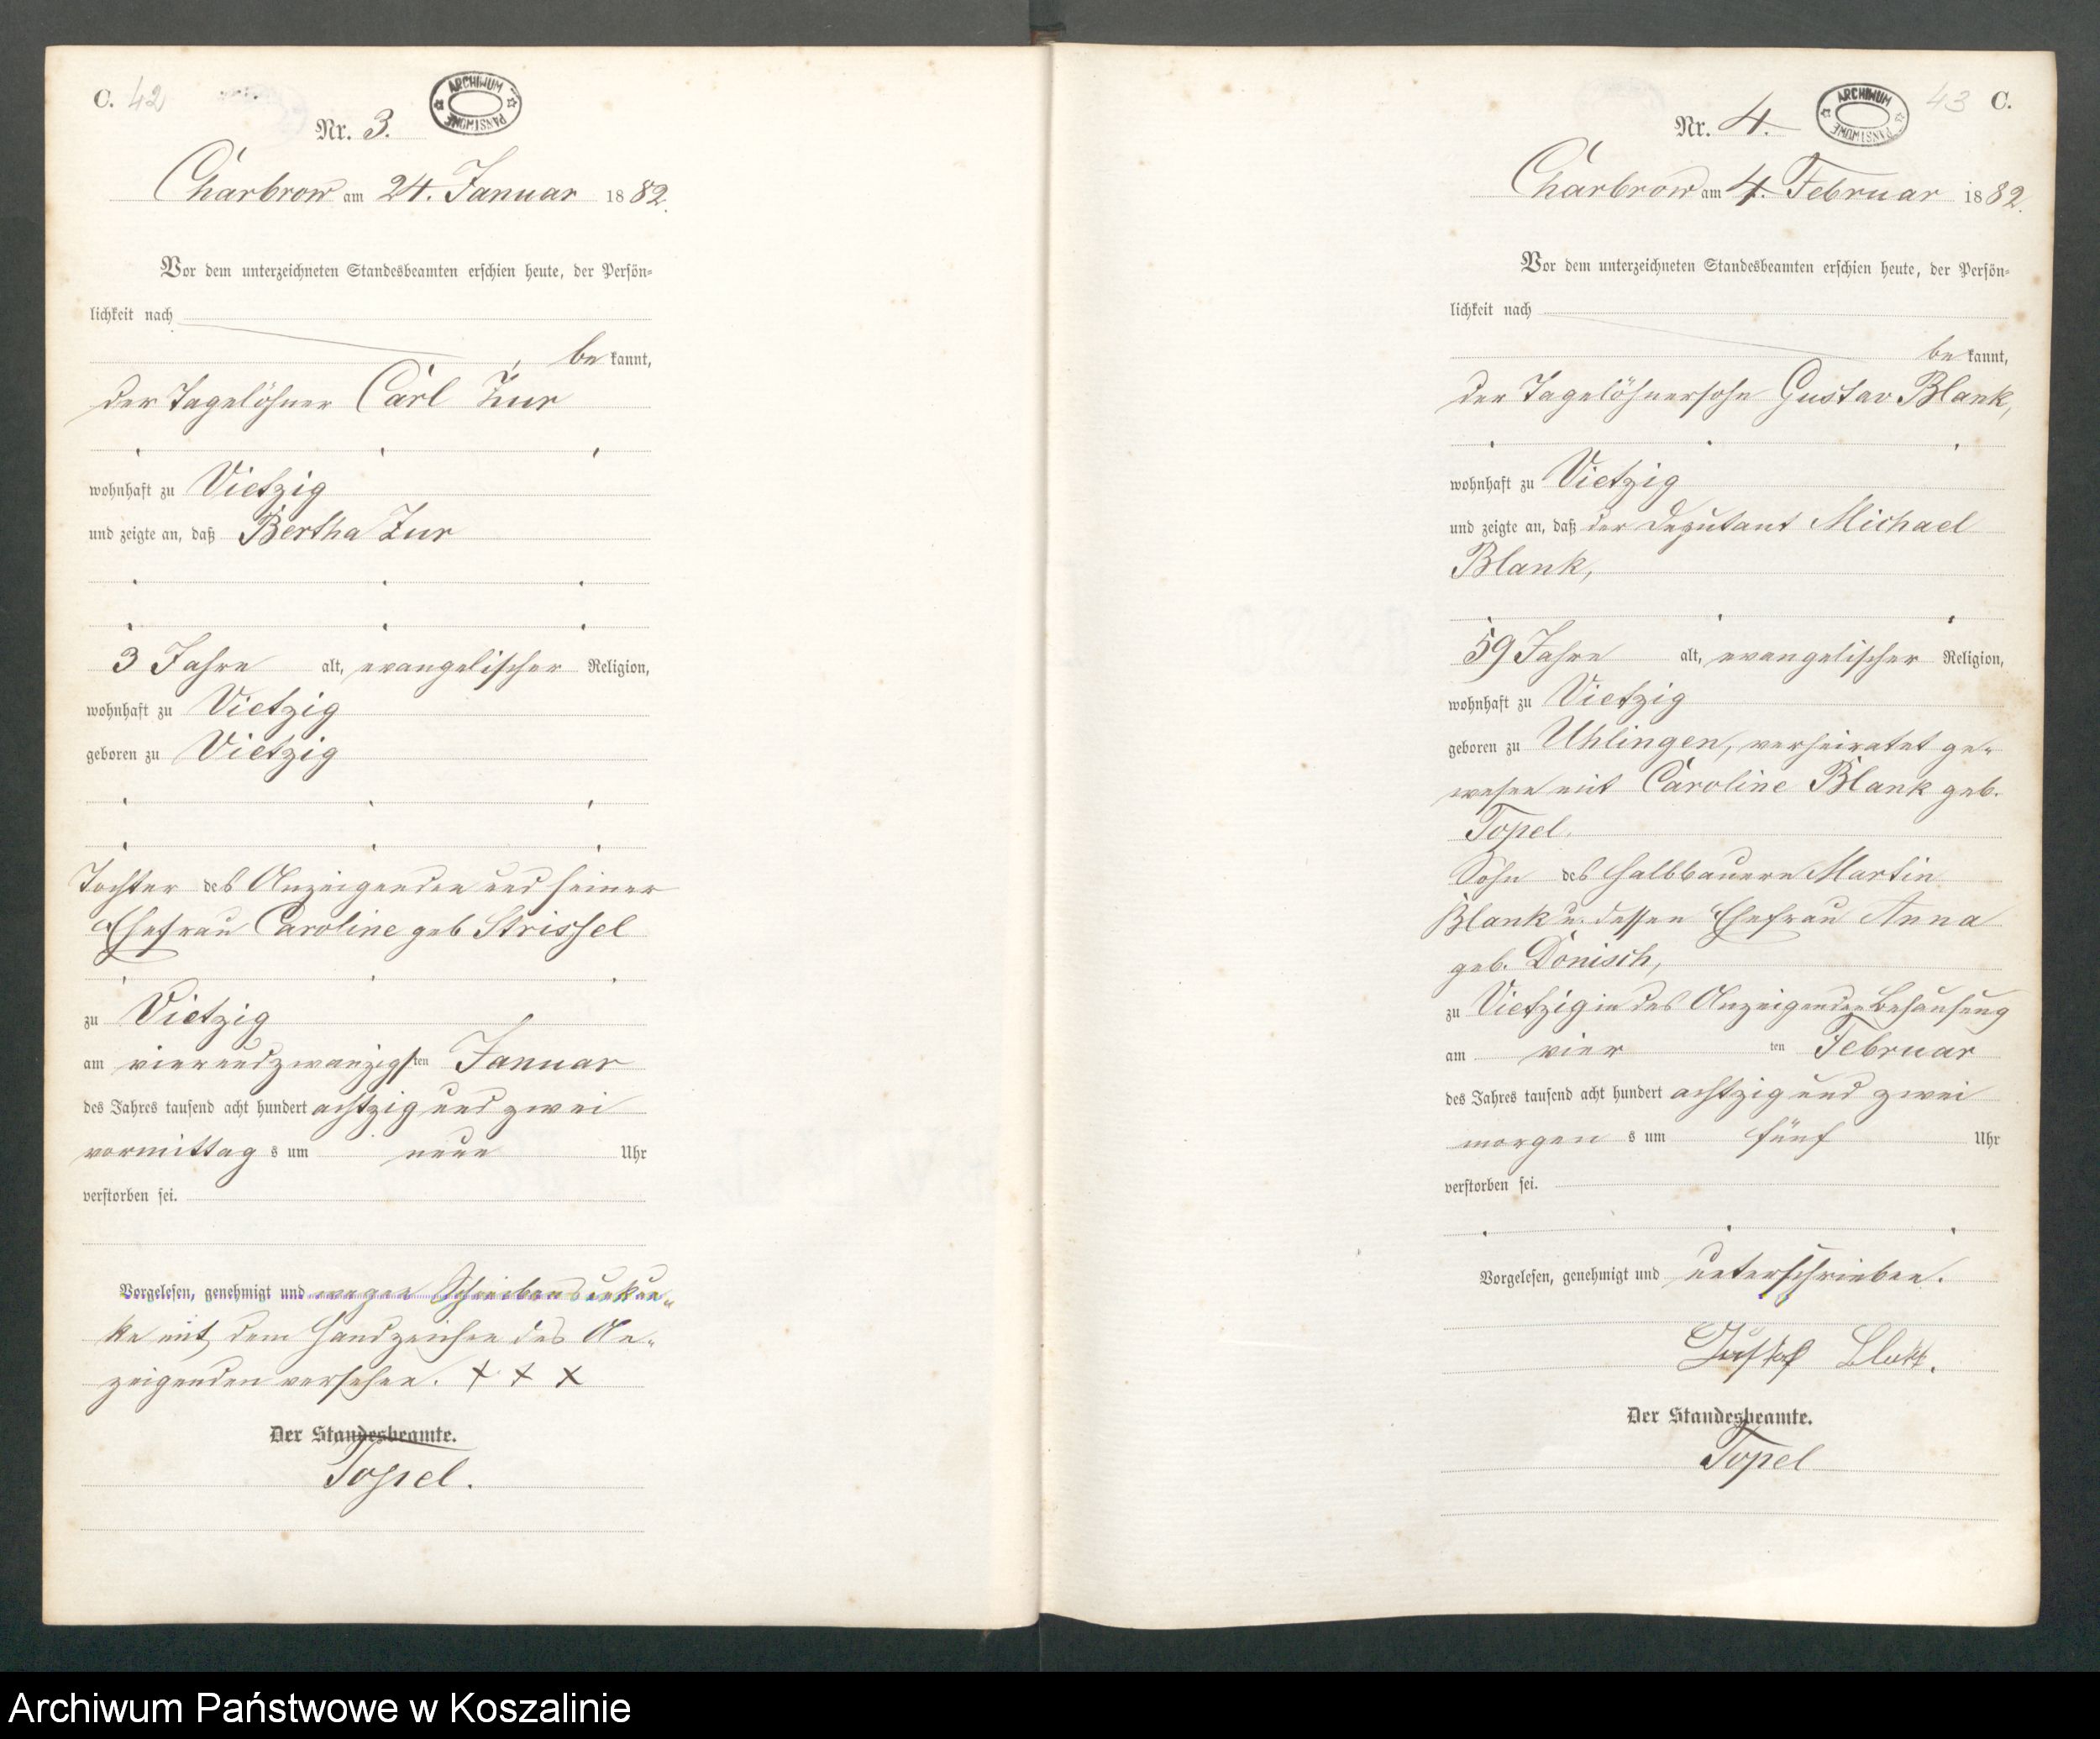 C. 42
ARCHIWUM PAŃSTWOWE
Nr. 3.
Charbrow am 24. Januar 1882.
Vor dem unterzeichneten Standesbeamten erschien heute, der Persön-
lichkeit nach
be kannt,
der Tagelöhner Carl Zur
wohnhaft zu Vietzig
und zeigte an, daß Bertha Zur
3 Jahre alt, evangelischer Religion,
wohnhaft zu Vietzig
geboren zu Vietzig
Tochter des Anzeigenden und seiner
Ehefrau Caroline geb Strissel
zu Vietzig
am vierundzwanzigsten Januar
des Jahres tausend acht hundert achtzig und zwei
vormittags um neun Uhr
verstorben sei.
Vorgelesen, genehmigt und wegen Schreibensunkun-
de mit dem Handzeichen des An-
zeigenden versehen. + + +
Der Standesbeamte.
Topel.
43 C.
ARCHIWUM PAŃSTWOWE
Nr. 4.
Charbrow am 4. Februar 1882.
Vor dem unterzeichneten Standesbeamten erschien heute, der Persön-
lichkeit nach
be kannt,
der Tagelöhnersohn Gustav Blank,
wohnhaft zu Vietzig
und zeigte an, daß der Deputant Michael
Blank,
59 Jahre alt, evangelischer Religion,
wohnhaft zu Vietzig
geboren zu Uhlingen, verheiratet ge-
wesen mit Caroline Blank geb.
Topel.
Sohn des Halbbauern Martin
Blank u. dessen Ehefrau Anna
geb. Donisch,
zu Vietzig in des Anzeigenden Behausung
am vier ten Februar
des Jahres tausend acht hundert achtzig und zwei
morgens um fünf Uhr
verstorben sei.
Vorgelesen, genehmigt und unterschrieben.
Gustaf
Der Standesbeamte.
Topel
Archiwum Państwowe w Koszalinie